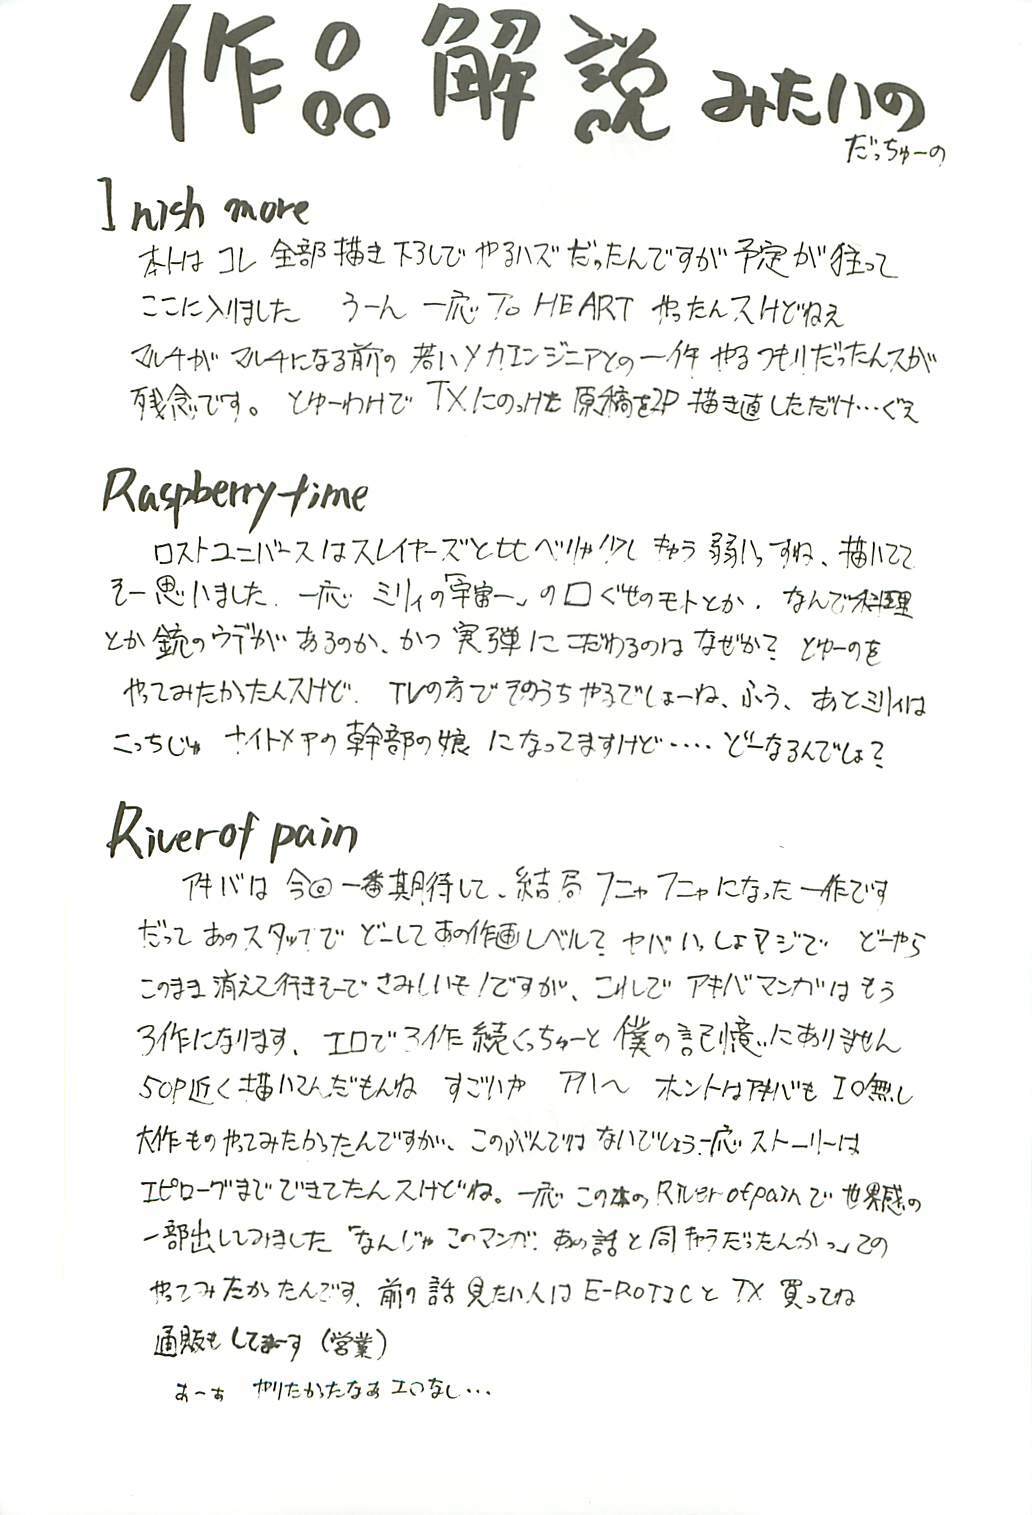 作品解説 みたいの
だっちゅーの
I wish more
本トは コレ 全部 描き下ろしで やるハズ だったんですが 予定が狂って
ここに入りました うーん 一応 To HEART やったんスけどねえ
マルチが マルチになる前の 若いメカエンジニアとの一件 やる つもりだったんスが
残念です。 とゆーわけで TXにのっけた 原稿を2P 描き直しただけ…ぐえ
Raspberry time
ロストユニバースはスレイヤーズと比べりゃ少し キャラ 弱いっすね、描いてて
そー思いました。 一応 ミリィの「宇宙一」の口ぐせのモトとか、なんで料理
とか銃のウデがあるのか、かつ実弾に こだわるのは なぜか? とゆーのを
やってみたかったんスけど、 TVの方で そのうち やるでしょーね、ふう、あとミリィは
こっちじゃ ナイトメアの幹部の娘 になってますけど‥‥ どーなるんでしょ?
River of pain
アキバは 今回一番期待して、結局 フニャフニャになった一作です
だって あのスタッフで どーしてあの作画レベル? ヤバいっしょマジで どーやら
このまま 消えて行きそーで さみしいモノですが、これで アキバマンガは もう
3作になります、 エロで3作 続くっちゅーと 僕の記憶にありません
50P近く描いてんだもんね すごいや アハヘ ホントはアキバも エロ無し
大作ものやってみたかったんですが、このぶんでは ないでしょう 一応 ストーリーは
エピローグまで できてたんスけどね。一応 この本の River of painで 世界感の
一部出してみました 「なんじゃ このマンガ、あの話と同キャラだったんかっ」ての
やってみたかったんです、前の話 見たい人は E-ROTICと TX 買ってね
通販も してまーす (営業)
あーぁ やりたかったなあ エロなし…